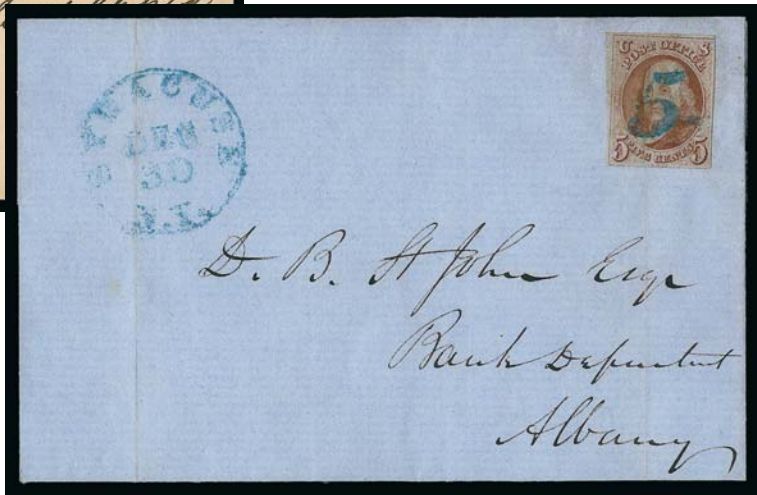 SYRACUSE
DEC
30
N.Y.
U S
POST OFFICE
5
FIVE CENTS
5 5
D. B. St John Esqr
Bank Department
Albany